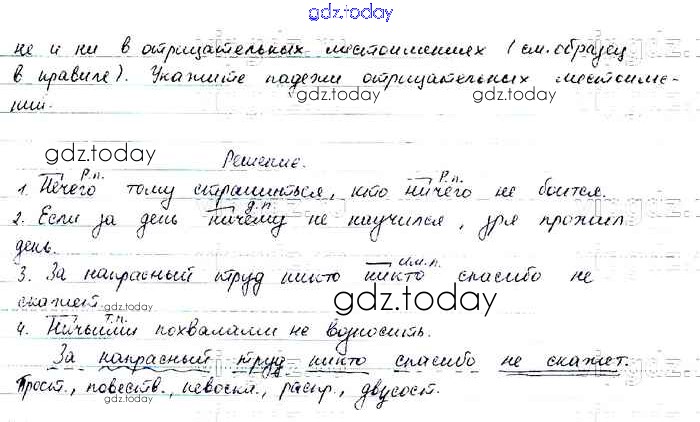 gdz.today
не и ни в отрицательных местоимениях (см. образец
в правиле). Укажите падежи отрицательных местоиме-
gdz.today gdz.today
ний.
gdz.today
Решение.
Р.п. Р.п.
1. Нечего тому страшиться, кто ничего не боится.
Д.п.
2. Если за день ничему не научился, зря прожил
день.
И.п.
3. За напрасный труд никто никто спасибо не
скажет.
gdz.today
gdz.today
Т.п.
4. Ничьими похвалами не возносить.
За напрасный труд никто спасибо не скажет.
Прост., повеств., невоскл., распр., двусост.
gdz.today
gdz.today